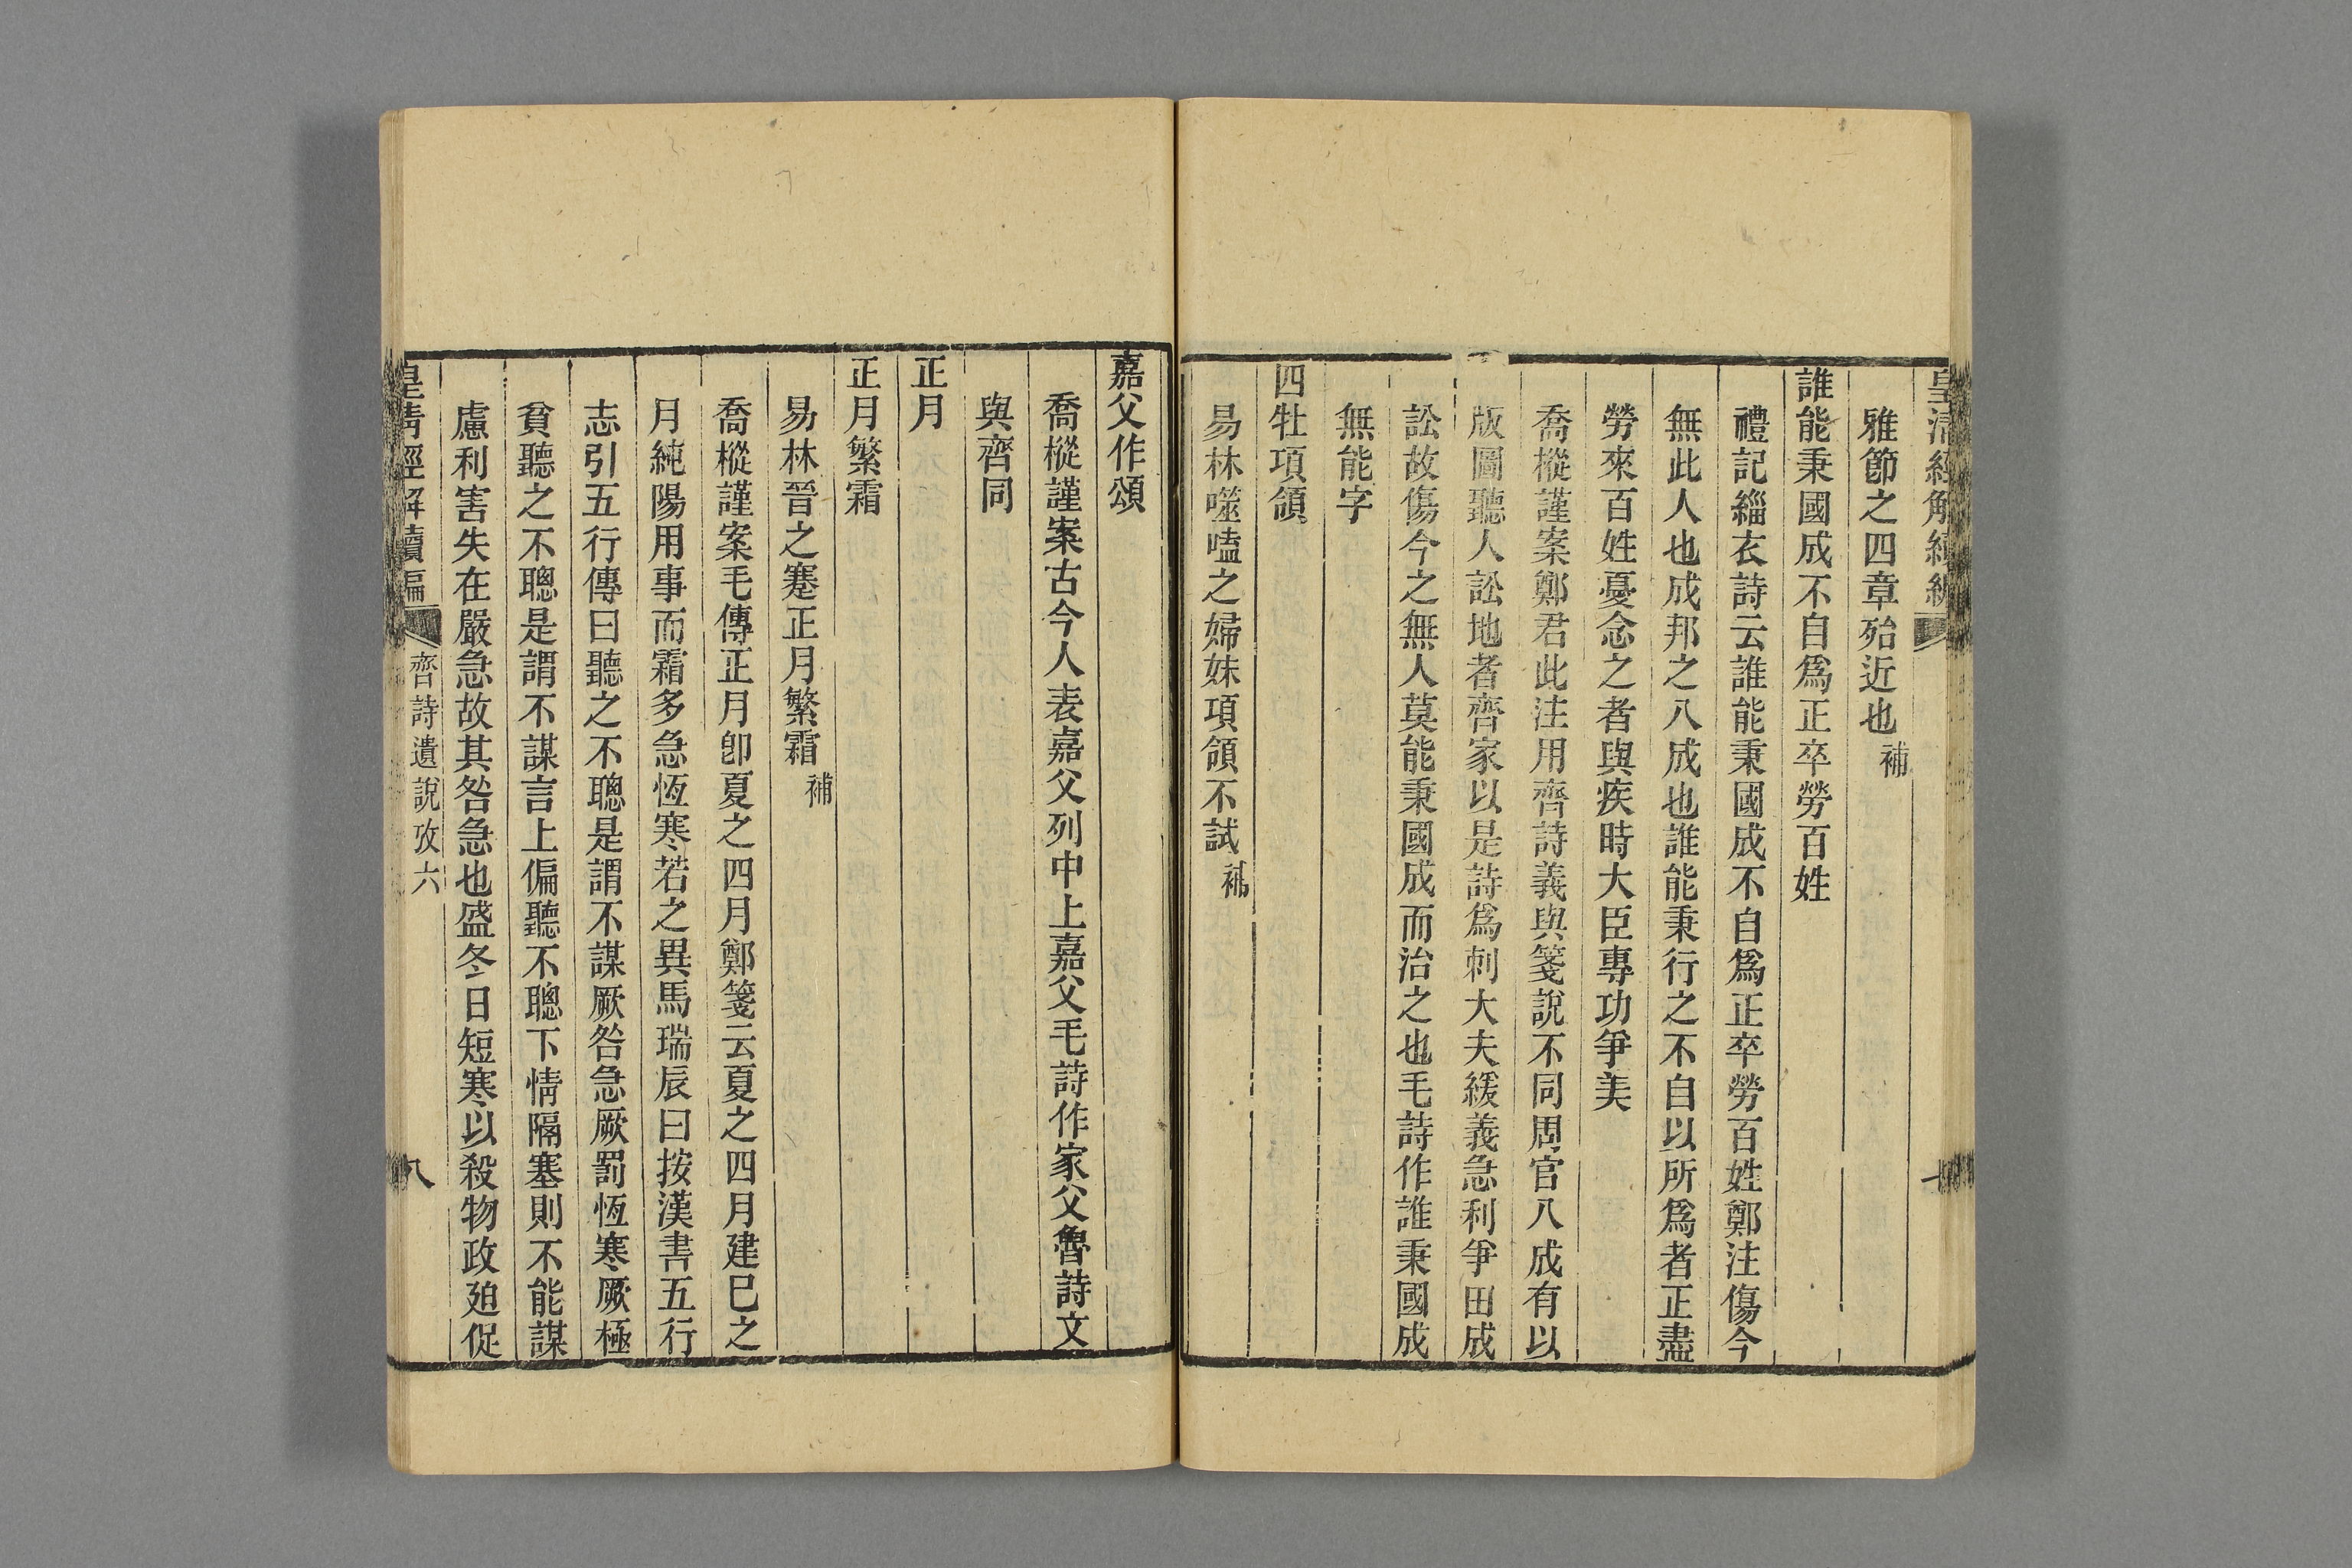 皇清經解續編
雅節之四章殆近也補
誰能秉國成不自爲正卒勞百姓
禮記緇衣詩云誰能秉國成不自爲正卒勞百姓鄭注傷今
無此人也成邦之八成也誰能秉行之不自以所爲者正盡
勞來百姓憂念之者與疾時大臣專功爭美
喬樅謹案鄭君此注用齊詩義與箋說不同周官八成有以
版圖聽人訟地者齊家以是詩爲刺大夫緩義急利爭田成
訟故傷今之無人莫能秉國成而治之也毛詩作誰秉國成
無能字
四牡項領
易林噬嗑之婦妹項領不試補
嘉父作頌
喬樅謹案古今人表嘉父列中上嘉父毛詩作家父魯詩文
與齊同
正月
正月繁霜
易林晉之蹇正月繁霜補
喬樅謹案毛傳正月卽夏之四月鄭箋云夏之四月建巳之
月純陽用事而霜多急恆寒若之異馬瑞辰曰按漢書五行
志引五行傳曰聽之不聰是謂不謀厥咎急厥罰恆寒厥極
貧聽之不聰是謂不謀言上偏聽不聰下情隔塞則不能謀
慮利害失在嚴急故其咎急也盛冬日短寒以殺物政廹促
皇清經解續編 齊詩遺說攷六 八